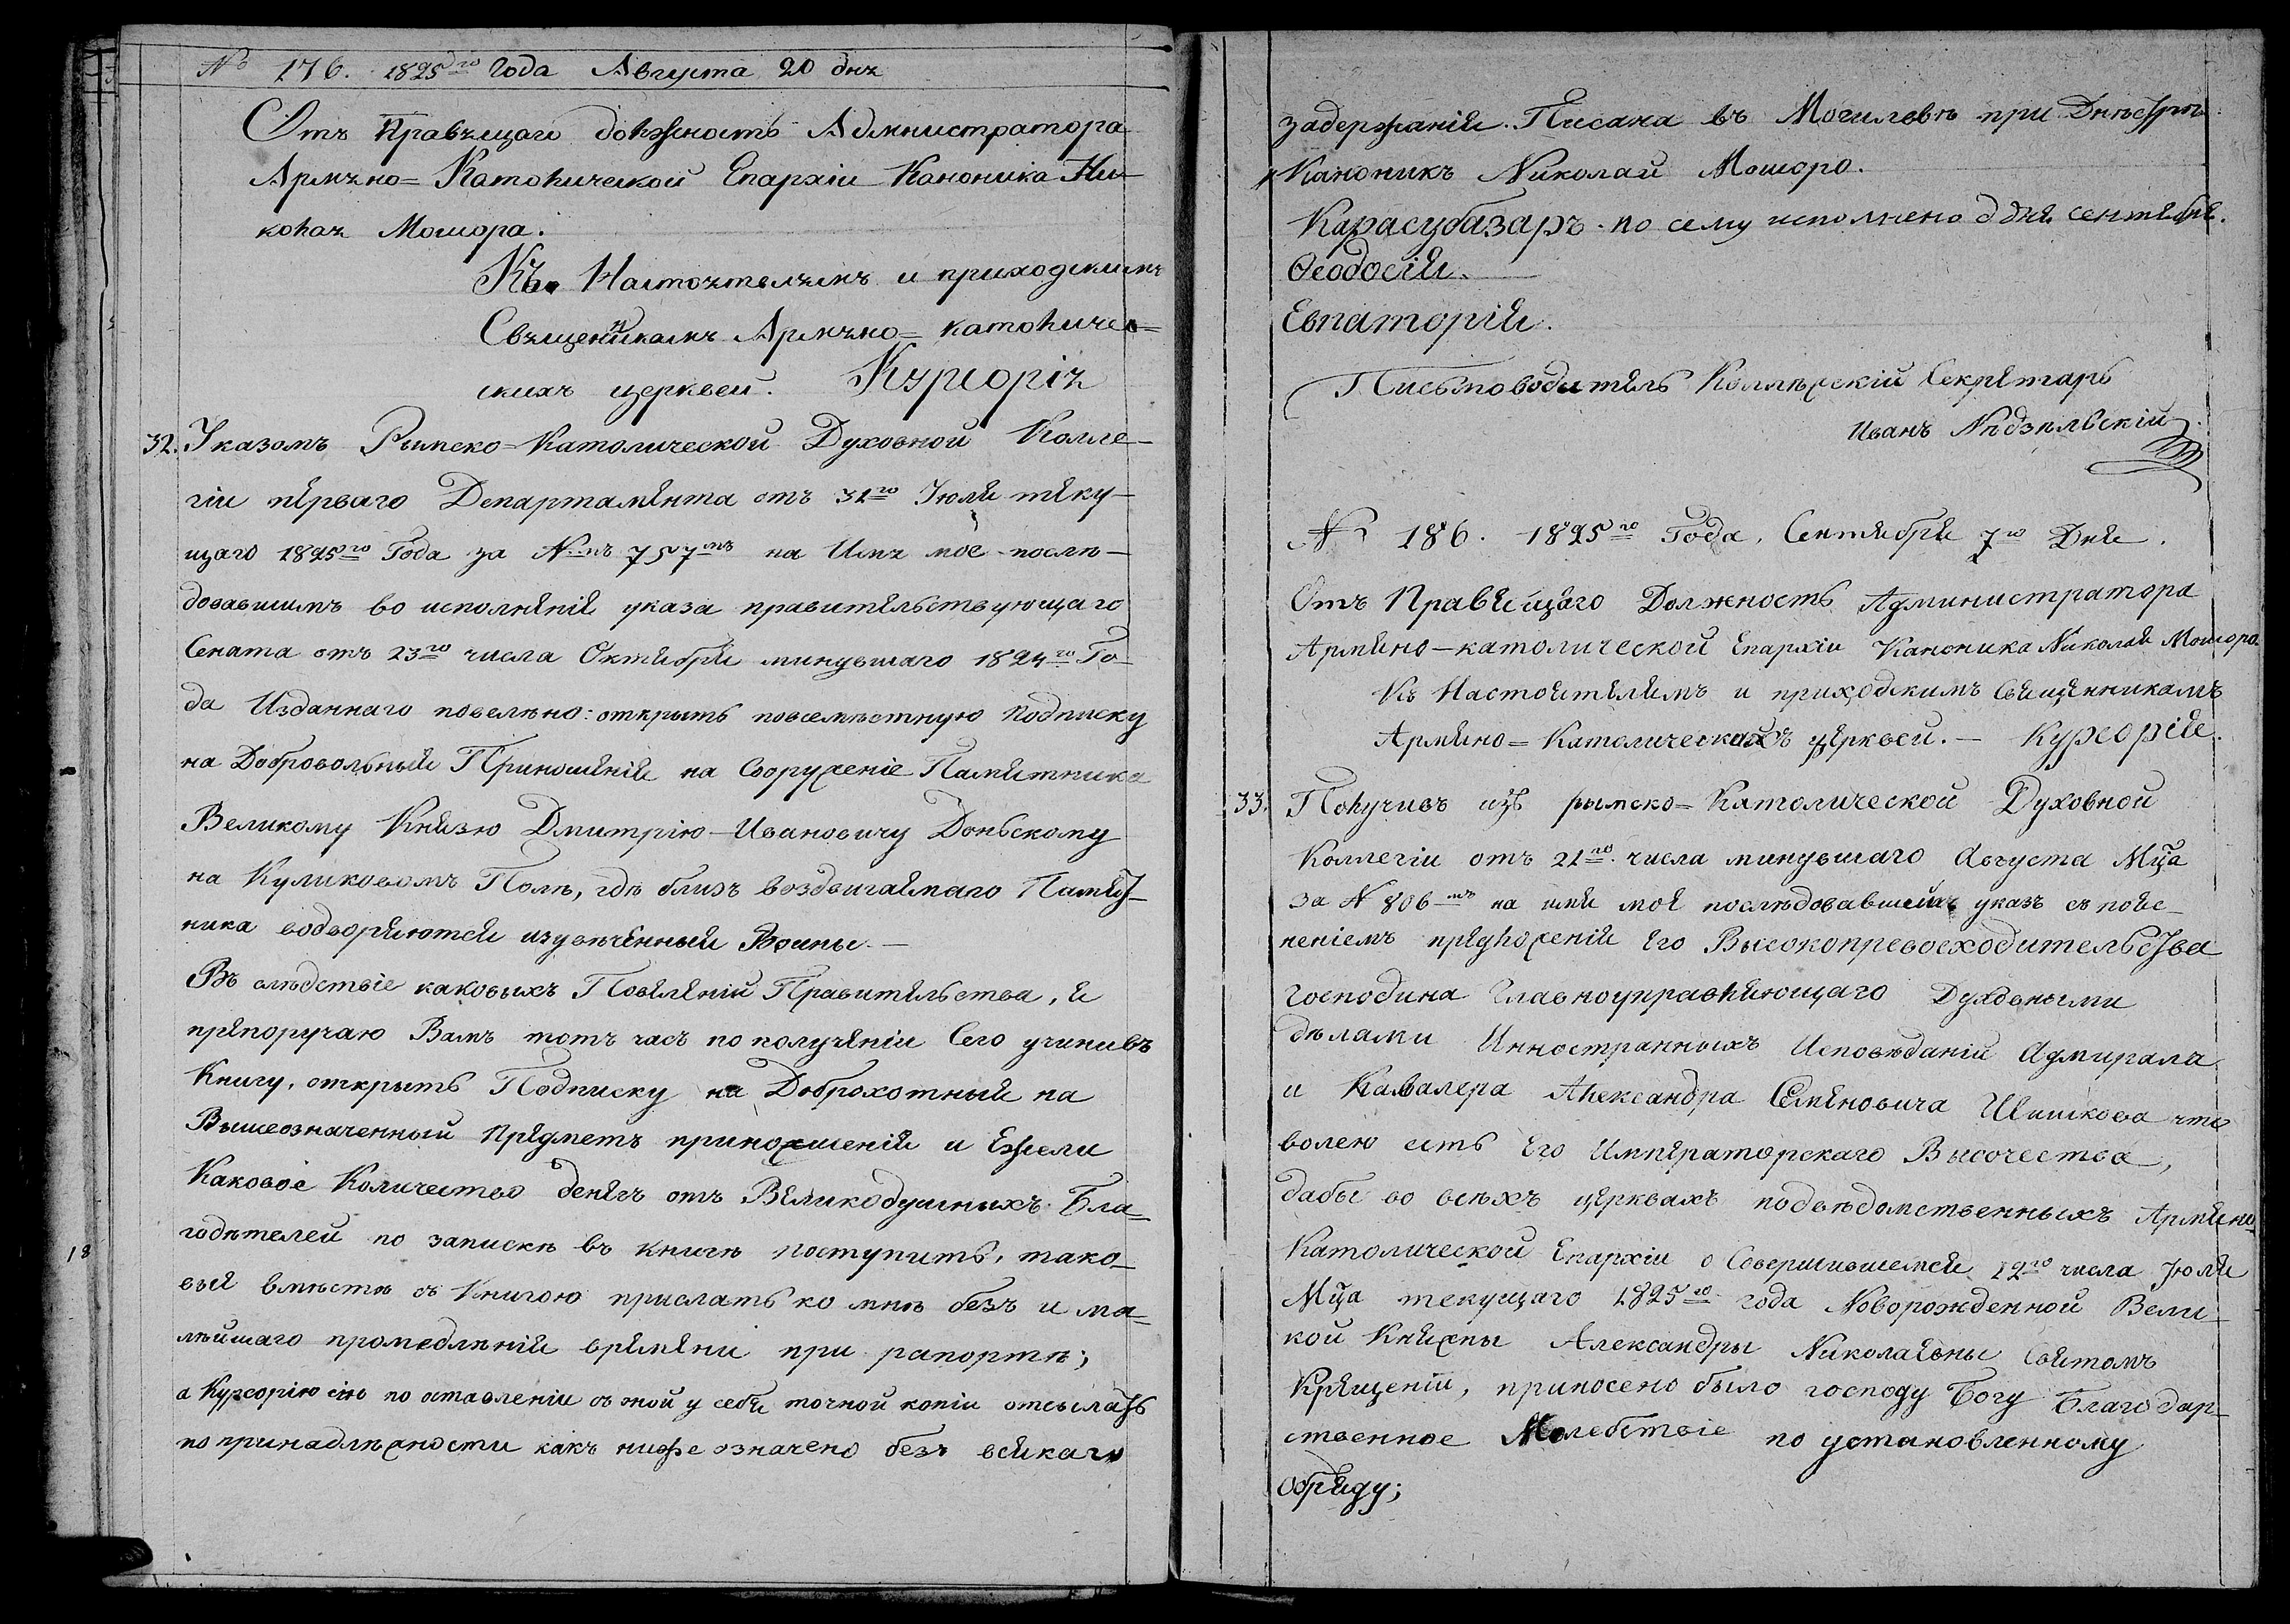 № 176. 1825го Года Августа 20 дня
Отъ Правящаго должность Администратора
Армяно=Католической Епархіи Каноника Ни-
колая Мошоро.
Къ Настоятелямъ и приходскимъ
Священникамъ Армяно=католичес=
кихъ церквей. Курсорія
32. Указомъ Римско=Католической Духовной Колле-
гіи перваго Департамента отъ 31го Іюля теку-
щаго 1825го Года за №мъ 757мъ на Имя мое послѣ-
довавшимъ во исполненія указа правительствующаго
Сената отъ 23го числа Октября минувшаго 1824го Го-
да Изданнаго повелѣно: открыть повсемѣстную подписку
на Добровольныя Приношенія на Сооруженіе Памятника
Великому Князю Дмитрію Ивановичу Доньскому
на Куликовомъ Полѣ, гдѣ близъ воздвигаемаго Памят-
ника водворяются изувѣченныя Воины.—
Въ слѣдствіе каковыхъ Повеленій Правительства, я
препоручаю Вамъ тотъ часъ по полученіи Сего учинивъ
Книгу, открыть Подписку на Доброхотныя на
Вышеозначенный Предметъ приношенія и Ежели
Каковое Количество денегъ отъ Великодушныхъ Бла=
годѣтелей по запискѣ въ книгѣ поступитъ, тако-
выя вмѣстѣ съ Книгою прислать ко мнѣ безъ и ма=
лѣйшаго промедлѣнія времяни при рапортѣ;
а Курсорію сію по оставленіи съ оной у себя точной копіи отсылать
по принадлежности какъ ниже означено безъ всякаго
18
задержанія. Писана въ Могилевѣ при Днѣстрѣ
Каноникъ Николай Мошоро.
Карасубазаръ. по сему исполнено д дня сентября.
Ѳеодосія.
Евпаторія.
Письмоводитель Коллежскій Секретарь
Иванъ Недзѣльскій
№ 186. 1825го Года, Сентября 7го Дня.
Отъ Правящаго Должность Администратора
Армяно-католической Епархіи Каноника Николая Мошоро.
Къ Настоятелямъ и приходскимъ Священникамъ
Армяно=Католическихъ церквей.— Курсорія.
33. Получивъ изъ рымско=Католической Духовной
Коллегіи отъ 21го числа минувшаго Августа Мца
за № 806мъ на имя мое послѣдовавшемъ указъ съ пояс-
неніемъ предложенія Его Высокопревосходительства
Господина Главноуправляющаго Духовными
дѣлами Инностранныхъ Исповѣданій Адмирала
и Кавалера Александра Семеновича Шишкова что
волею есть Его Императорскаго Высочества,
дабы во всѣхъ церквахъ подвѣдомственныхъ Армяно
Католической Епархіи о Совершившемся 12го числа Іюля
Мца текущаго 1825го года Новорожденной Вели-
кой Княжны Александры Николаевны Святомъ
Крещеніи, приносено было господу Богу Благодар-
ственное Молебствіе по установленному
обряду;